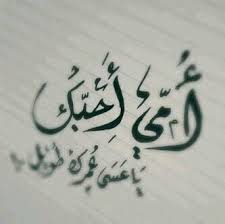 أُمّي أُحِبّك
يَا عَسَى عُمرِك طُويل